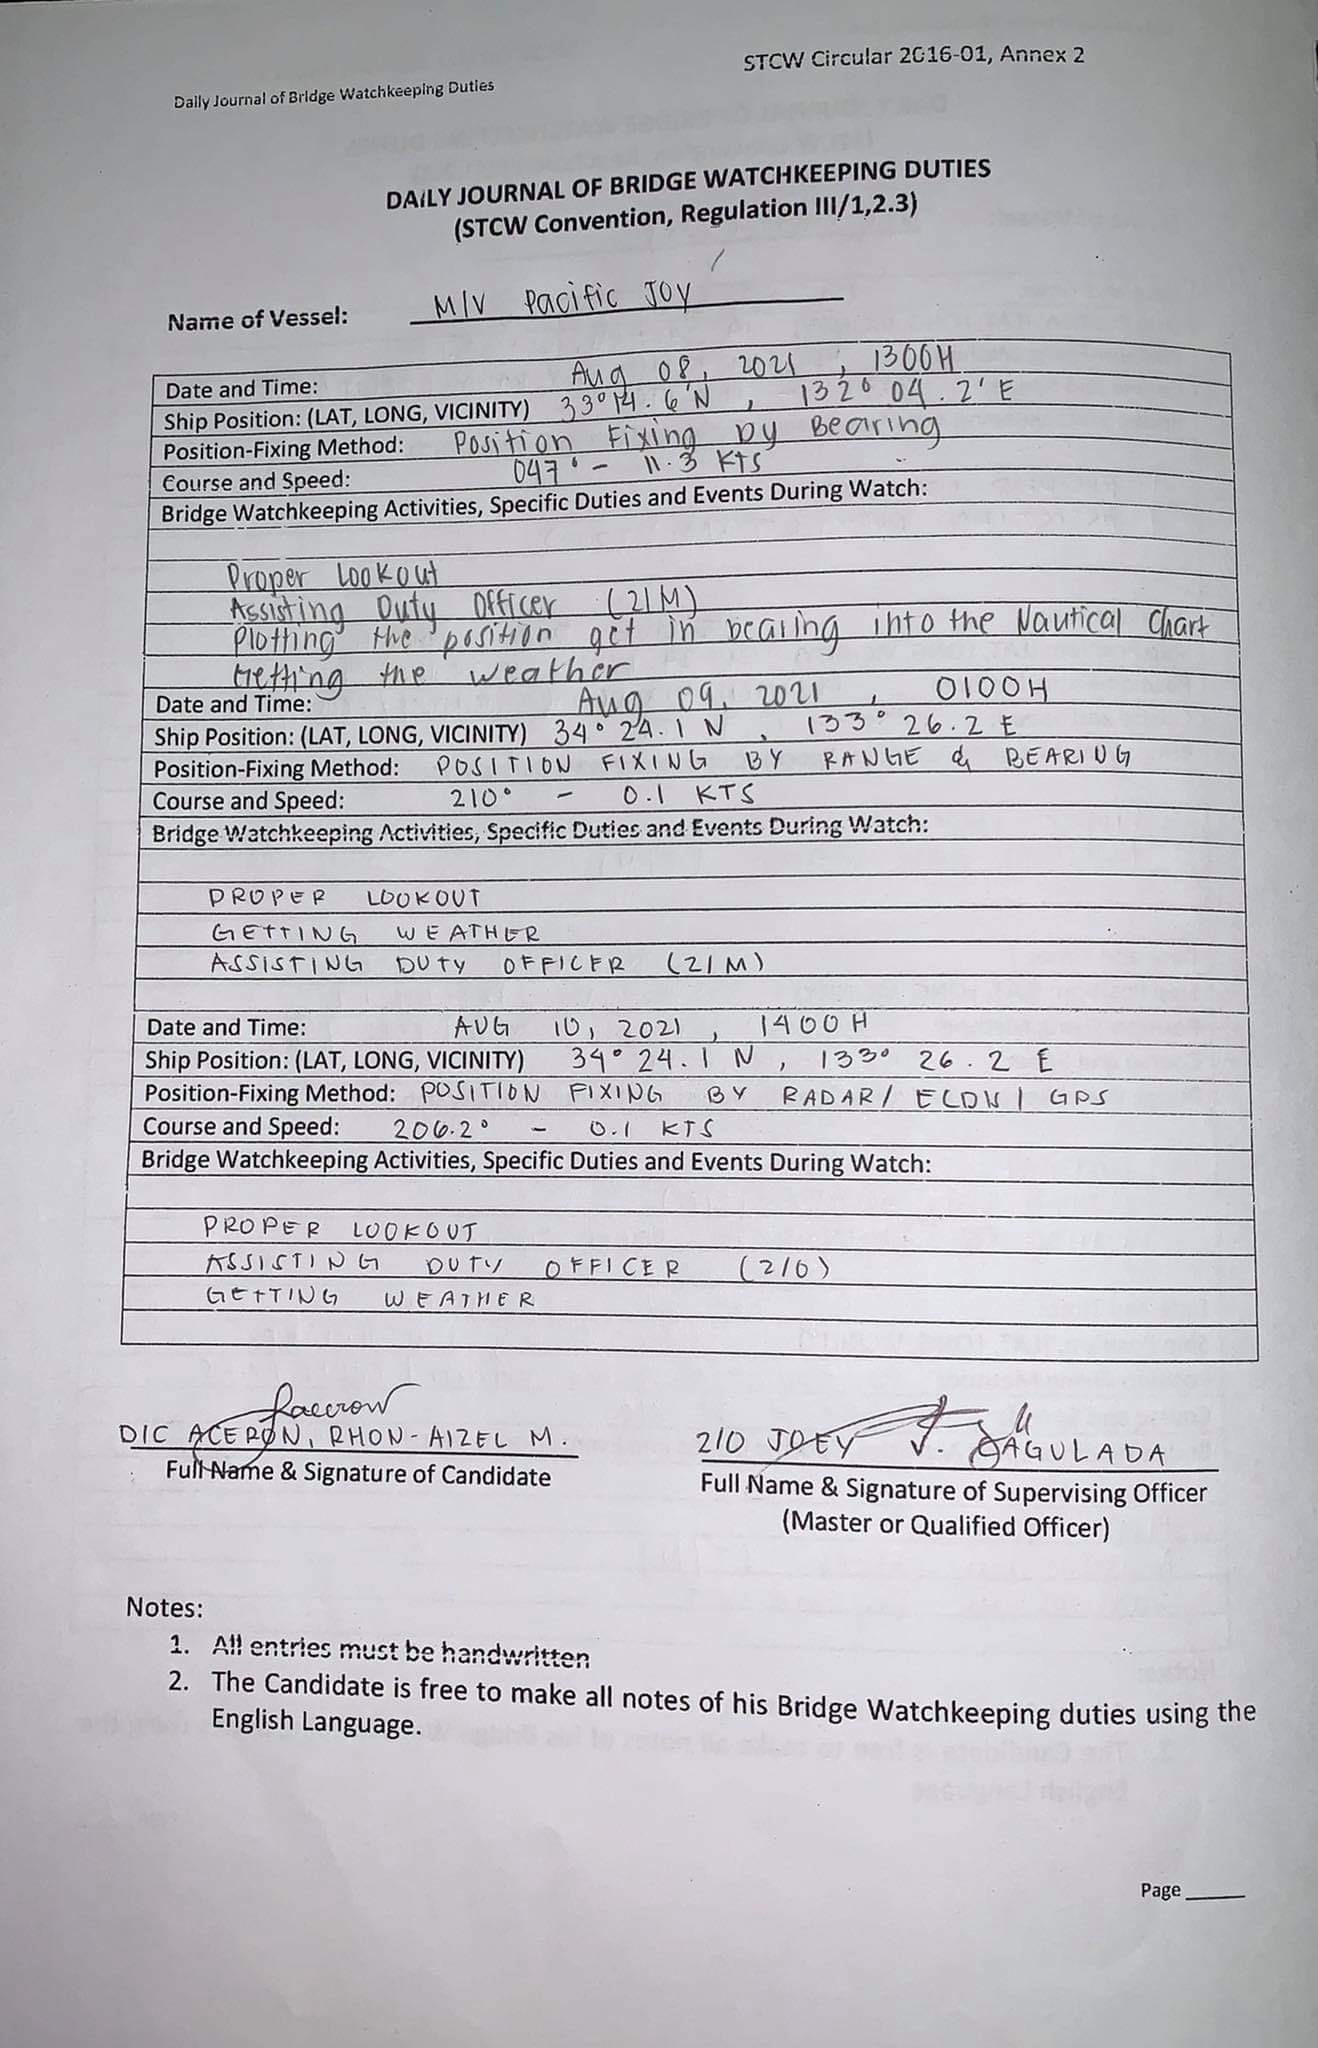 STCW Circular 2016-01, Annex 2
Daily Journal of Bridge Watchkeeping Duties
DAILY JOURNAL OF BRIDGE WATCHKEEPING DUTIES
(STCW Convention, Regulation III/1,2.3)
Name of Vessel: M/V Pacific Joy
Date and Time: Aug 08, 2021, 1300H
Ship Position: (LAT, LONG, VICINITY) 33° 14.6'N, 132° 04.2'E
Position-Fixing Method: Position Fixing by Bearing
Course and Speed: 047° - 11.3 KTS
Bridge Watchkeeping Activities, Specific Duties and Events During Watch:
Proper Lookout
Assisting Duty Officer (2/M)
Plotting the position get in bearing into the Nautical Chart
Getting the weather
Date and Time: Aug 09, 2021, 0100H
Ship Position: (LAT, LONG, VICINITY) 34° 24.1 N, 133° 26.2 E
Position-Fixing Method: POSITION FIXING BY RANGE & BEARING
Course and Speed: 210° - 0.1 KTS
Bridge Watchkeeping Activities, Specific Duties and Events During Watch:
PROPER LOOKOUT
GETTING WEATHER
ASSISTING DUTY OFFICER (2/M)
Date and Time: AUG 10, 2021, 1400H
Ship Position: (LAT, LONG, VICINITY) 34° 24.1 N, 133° 26.2 E
Position-Fixing Method: POSITION FIXING BY RADAR/ ECDIS/ GPS
Course and Speed: 206.2° - 0.1 KTS
Bridge Watchkeeping Activities, Specific Duties and Events During Watch:
PROPER LOOKOUT
ASSISTING DUTY OFFICER (2/O)
GETTING WEATHER
D/C ACERON, RHON-AIZEL M. 2/O JOEY J. DAGULADA
Full Name & Signature of Candidate Full Name & Signature of Supervising Officer
(Master or Qualified Officer)
Notes:
1. All entries must be handwritten
2. The Candidate is free to make all notes of his Bridge Watchkeeping duties using the
English Language.
Page